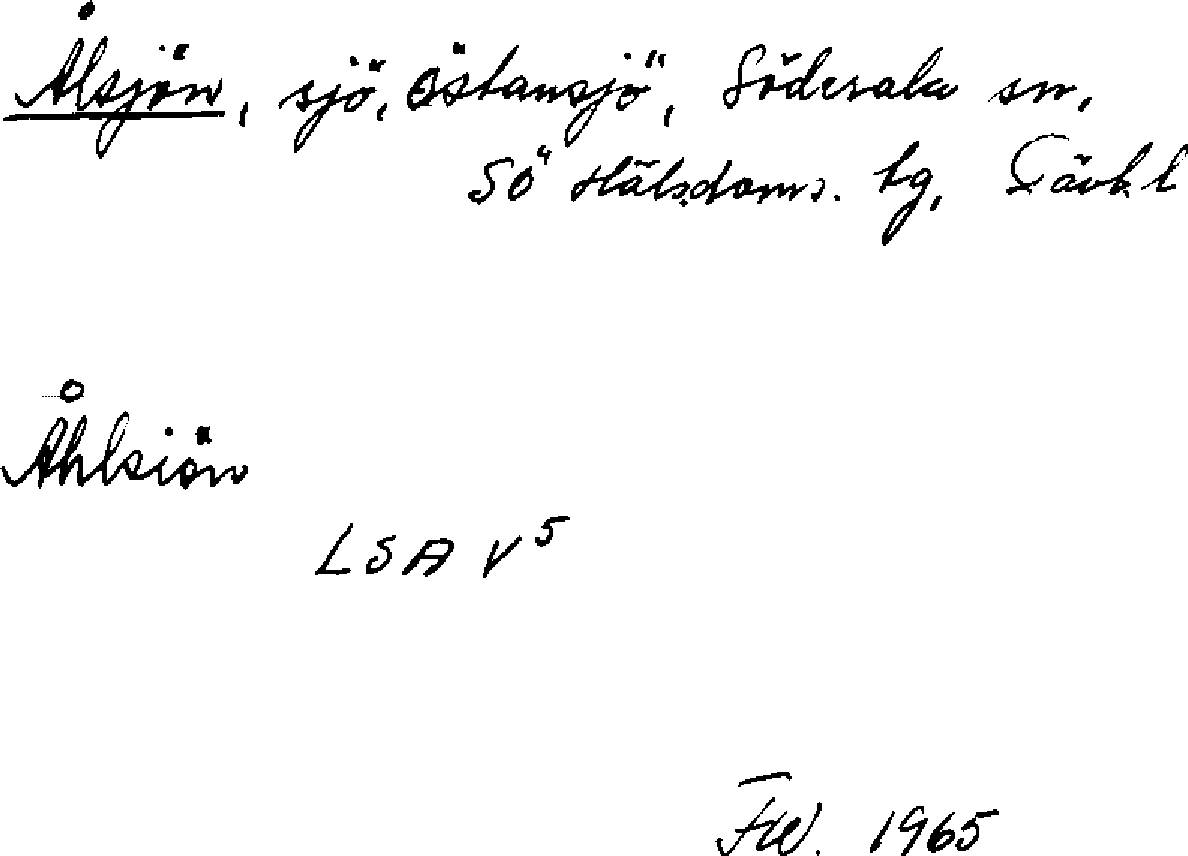 Ålsjön, sjö, Östansjö, Söderala sn,
Sö Hälsdoms. tg, Gävl. l
Åhlsiön
LSA V5
FW. 1965